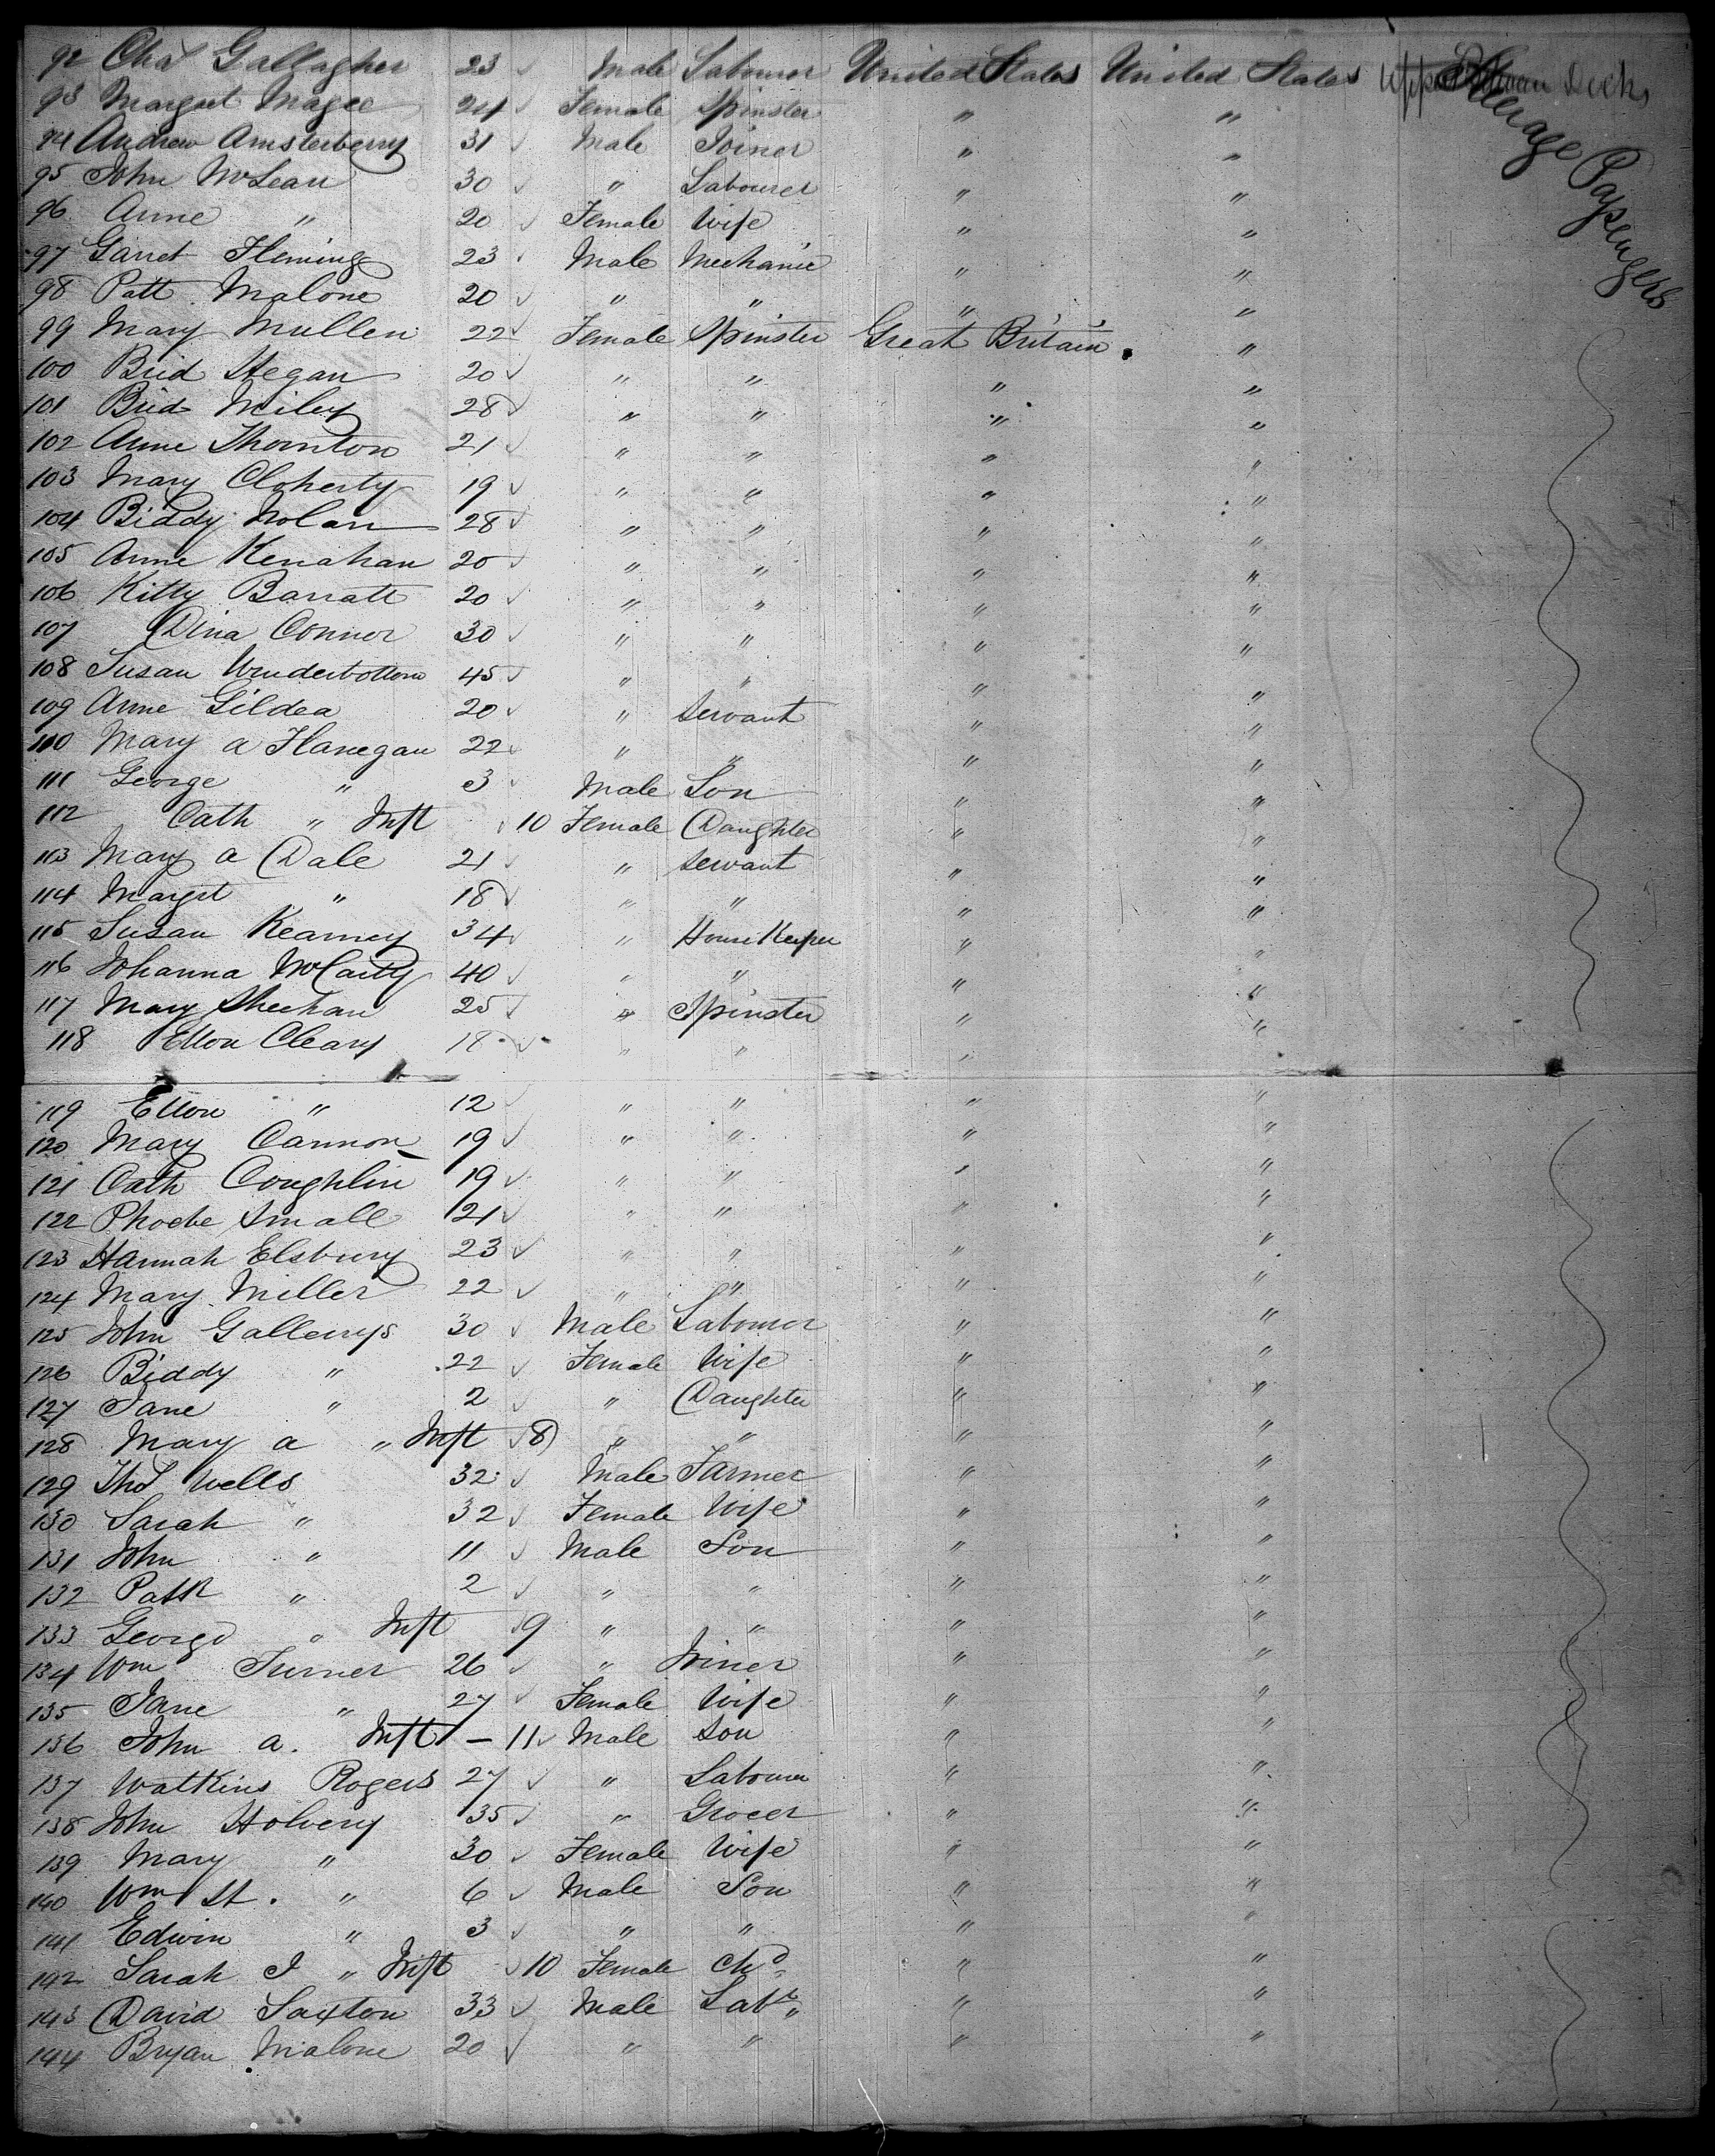 92 Chas Gallagher 23 Male Labourer United States United States Upper Deck
93 Margret Magee 24 Female Spinster " " Steerage Passengers
94 Andrew Amsterberry 31 Male Joiner " "
95 John McLean 30 " Labourer " "
96 Anne " 20 Female Wife " "
97 Garret Fleming 23 Male Mechanic " "
98 Patt Malone 20 " " " "
99 Mary Mullen 22 Female Spinster Great Britain "
100 Brid Hegan 20 " " " "
101 Brid Miley 28 " " " "
102 Anne Thornton 21 " " " "
103 Mary Cloherty 19 " " " "
104 Biddy Nolan 28 " " " "
105 Anne Kenahan 20 " " " "
106 Kitty Barratt 20 " " " "
107 Dina Connor 30 " " " "
108 Susan Wruderbottom 45 " " " "
109 Anne Gildea 20 " Servant " "
110 Mary a Flanegan 22 " " " "
111 George " 3 Male Son " "
112 Cath " Inft 10 Female Daughter " "
113 Mary a Dale 21 " Servant " "
114 Margt " 18 " " " "
115 Susan Kearney 34 " House Keeper " "
116 Johanna McCarty 40 " " " "
117 Mary Sheehan 25 " Spinster " "
118 Ellon Cleary 18 " " " "
119 Ellon " 12 " " " "
120 Mary Cannon 19 " " " "
121 Cath Coughlin 19 " " " "
122 Phoebe Small 21 " " " "
123 Hannah Elsbury 23 " " " "
124 Mary Miller 22 " " " "
125 John Gallerrys 30 Male Labourer " "
126 Biddy " 22 Female Wife " "
127 Jane " 2 " Daughter " "
128 Mary a " Inft 8 " " " "
129 Thos Wells 32 Male Farmer " "
130 Sarah " 32 Female Wife " "
131 John " 11 Male Son " "
132 Patk " 2 " " " "
133 George " Inft 9 " " " "
134 Wm Turner 26 " Joiner " "
135 Jane " 27 Female Wife " "
136 John a. Inft – 11 Male Son " "
137 Watkins Rogers 27 " Labourer " "
138 John Holvery 35 " Grocer " "
139 Mary " 30 Female Wife " "
140 Wm St. " 6 Male Son " "
141 Edwin " 3 " " " "
192 Sarah J " Inft 10 Female Chd " "
143 David Saxton 33 Male Labr " "
144 Bryan Malone 20 " " " "